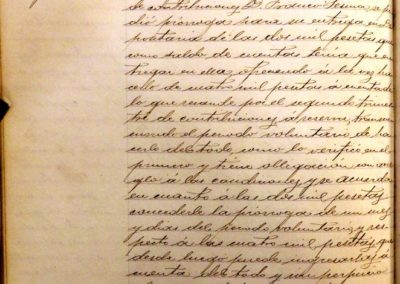 de contribuciones D. Federico Lesma, se pi
dió prórroga para su entrega en De
positaria de las dos mil pesetas que
como saldo de cuentas tenia que en
tregar en ella, ofreciendo á la vez ha
cerlo de cuatro mil pesetas á cuenta de
lo que recaude por el segundo trimes
tre de contribuciones á reserva, transcu
rriendo el periodo voluntario de ha
cerlo del todo, como lo verificó en el
primero y tiene obligación con arre
glo á las condiciones, y se acuerda
en cuanto á las dos mil pesetas
concederle la prórroga de un mes
y dias del periodo voluntario, y res
pecto á las cuatro mil pesetas, que
desde luego puede ingresarlas á
cuenta del todo y sin perjuicio